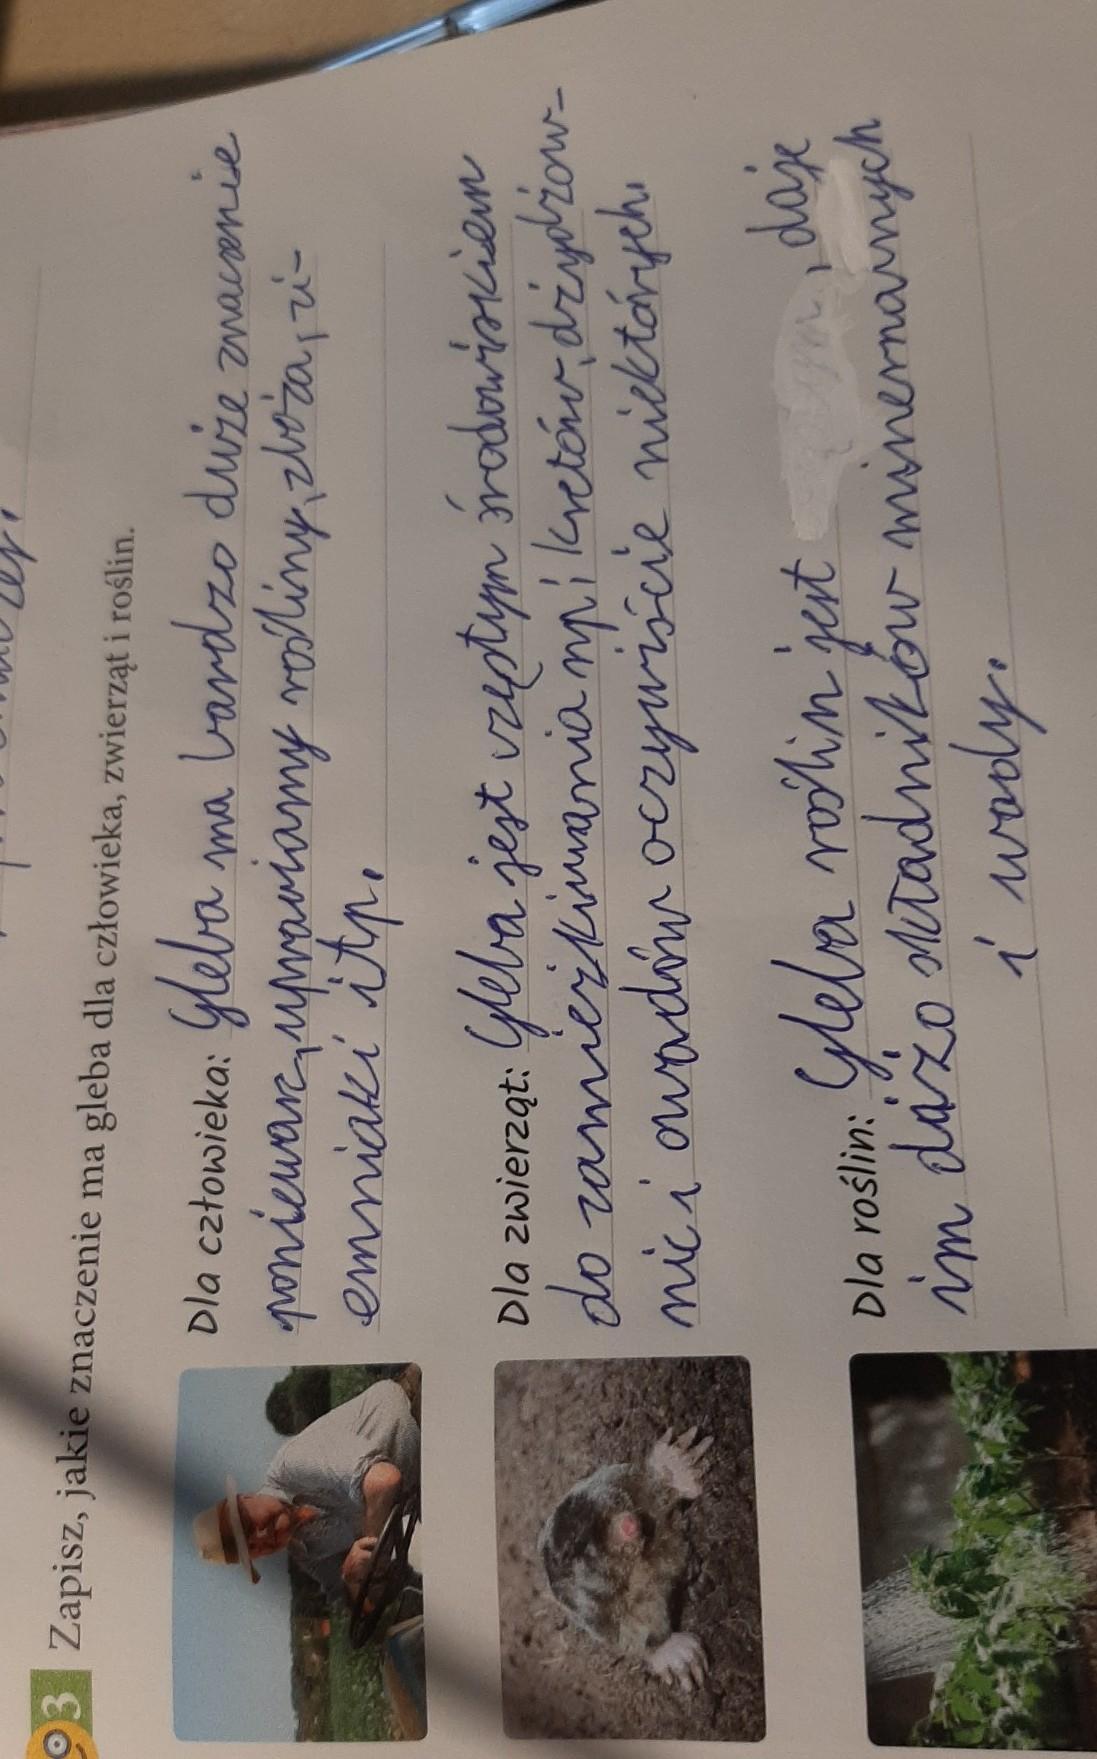 3 Zapisz, jakie znaczenie ma gleba dla człowieka, zwierząt i roślin.
Dla człowieka: Gleba ma bardzo duże znaczenie
ponieważ, uprawiamy rośliny, zboża, zi-
emniaki itp.
Dla zwierząt: Gleba jest częstym środowiskiem
do zamieszkiwania np; kretów, dżydżow-
nic i owadów oczywiście niektórych.
Dla roślin: Gleba roślin jest , daje
im dużo składników minernannych
i wody.